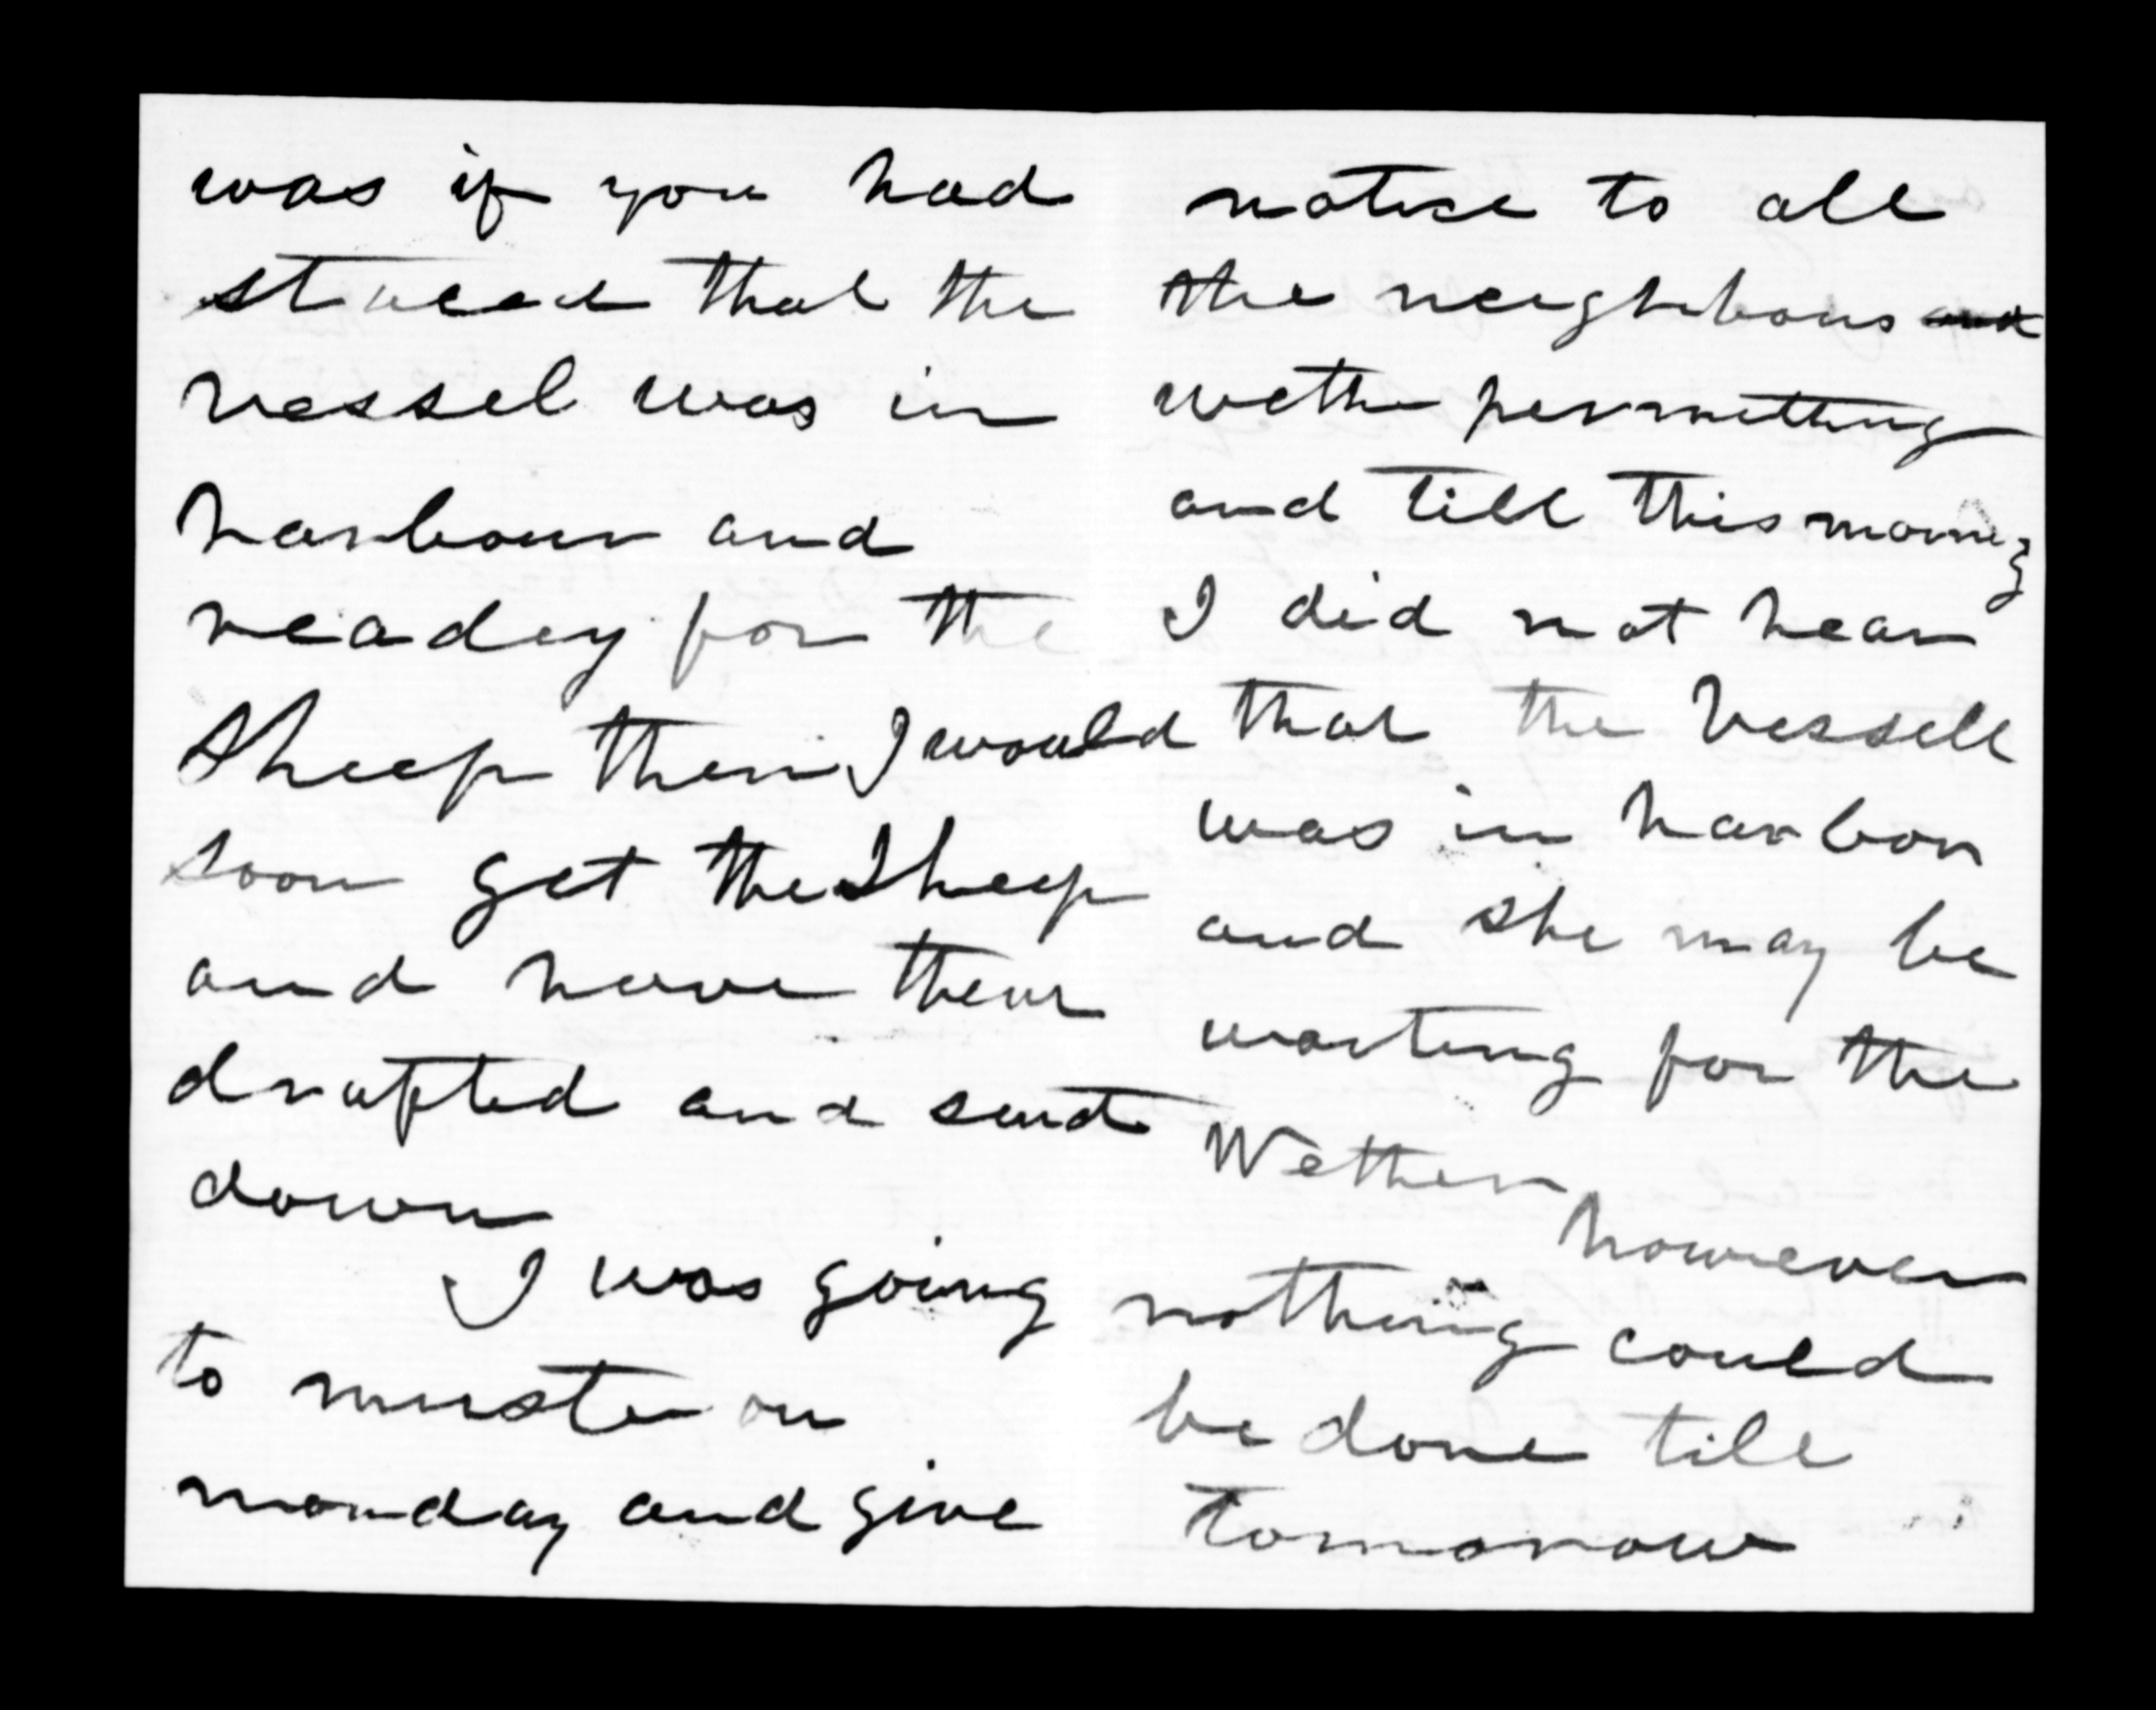 was if you had
staced that the
vessel was in
harbour and
readey for the
Sheep then I would
soon get the Sheep
and have them
drafted and send
down
I was going
to muster on
monday and give
notice to all
the neighbours and
wether permitting
and till this morning
I did not hear
that the Vessell
was in harbor
and she may be
waiting for the
Wether
however
nothing could
be done till
tomorow